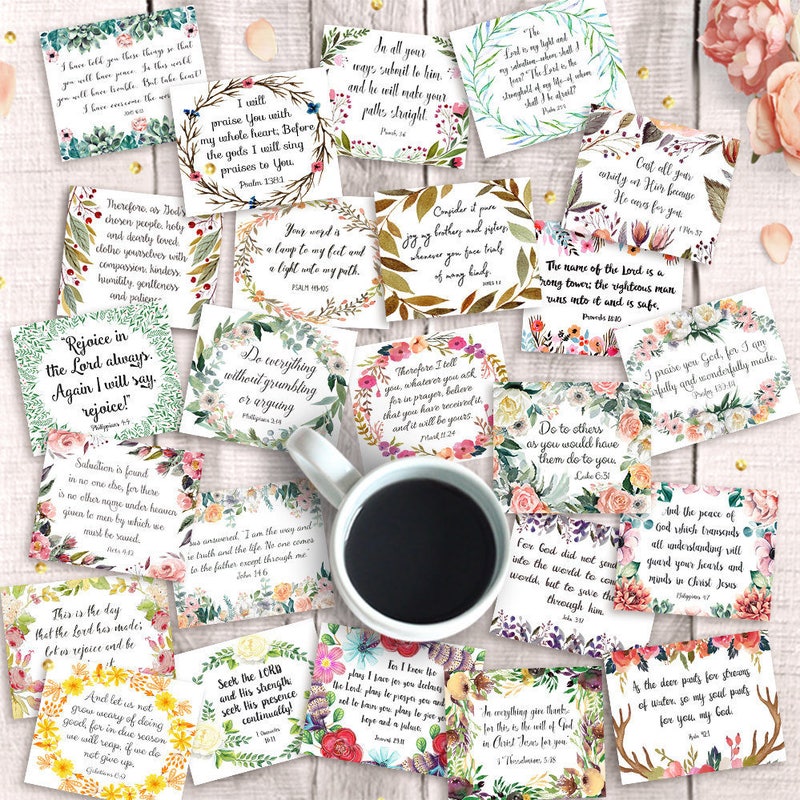 I have told you these things so that
you will have peace. In this world
you will have trouble. But take heart!
I have overcome the
I will
praise You with
my whole heart; Before
the gods I will sing
praises to You.
Psalm 138:1
In all your
ways submit to him,
and he will make your
paths straight.
The
Lord is my light and
my salvation—whom shall I
fear? "The Lord is the
stronghold of my life—of whom
shall I be afraid?
Psalm 27:1
Cast all your
anxiety on Him because
He cares for you.
Therefore, as God's
chosen people, holy
and dearly loved,
clothe yourselves with
compassion, kindness,
humility, gentleness
and
Your word is
a lamp to my feet and
a light unto my path.
PSALM 119:105
Consider it pure
joy my brothers and sisters,
whenever you face trials
of many kinds.
JAMES 1:2
The name of the Lord is a
strong tower; the righteous man
runs into it and is safe.
Proverbs 18:10
"Rejoice in
the Lord always.
Again I will say,
rejoice!"
Philippians 4:4
Do everything
without grumbling
or arguing
Philippians 2:14
Therefore I tell
you, whatever you ask
for in prayer, believe
that you have received it,
and it will be yours.
Mark 11:24
I praise you God, for I am
fearfully and wonderfully made.
Do to others
as you would have
them do to you.
Luke 6:31
Salvation is found
in no one else, for there
is no other name under heaven
given to men by which we
must be saved.
Acts 4:12
answered, "I am the way and
the truth and the life. No one comes
to the father except through me."
John 14:6
For God did not
into the world to
world, but to save the
through him.
John 3:17
And the peace of
God which transcends
all understanding will
guard your hearts and
minds in Christ Jesus
Philippians 4:7
This is the day
that the Lord has made;
let us rejoice and be
And let us not
grow weary of doing
good, for in due season
we will reap, if we do
not give up.
Galatians 6:9
Seek the LORD
and His strength;
seek His presence
continually!
1 Chronicles
16:11
For I know the
plans I have for you declares
the Lord; plans to prosper you and
not to harm you, plans to give you
hope and a future.
Jeremiah 29:11
In everything give thanks,
for this is the will of God
in Christ Jesus for you.
1 Thessalonians 5:18
As the deer pants for streams
of water, so my soul pants
for you, my God.
Psalm 42:1